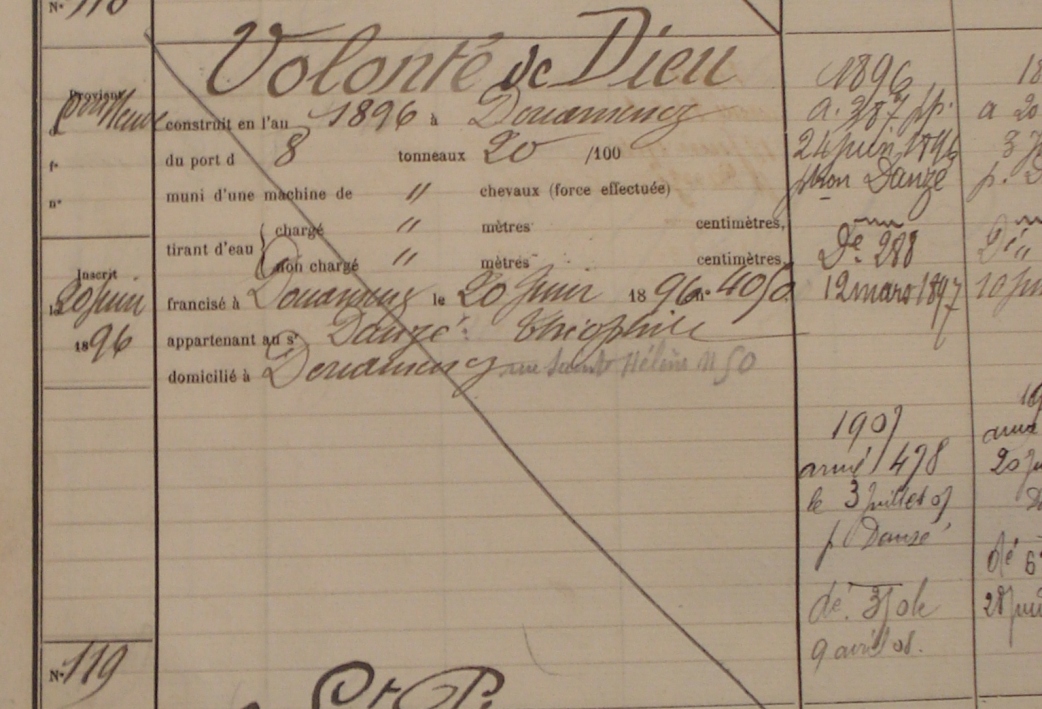 N° 118
Volonté de Dieu
Provient
construit en l'an 1896 à Douarnenez
du port d 8 tonneaux 20 /100
fo
muni d'une machine de " chevaux (force effectuée)
n°
chargé " mètres centimètres,
tirant d'eau
non chargé " mètres centimètres,
Inscrit
le 20 Juin
1896
francisé à Douarnenez le 20 Juin 1896 n°
appartenant au sr Danzé Théophile
domicilié à Douarnenez rue Sainte Hélène n 50
1896
a. 387
24 juin 1896
patron Danzé
Dé 288
12 mars 1897
1907
armé 478
le 3 Juillet 07
p. Danzé
dé.
9 avril 08.
18
a 20
p. D
10 jui
armé
20 ju
dé 6
28 jui
N° 119
St P.